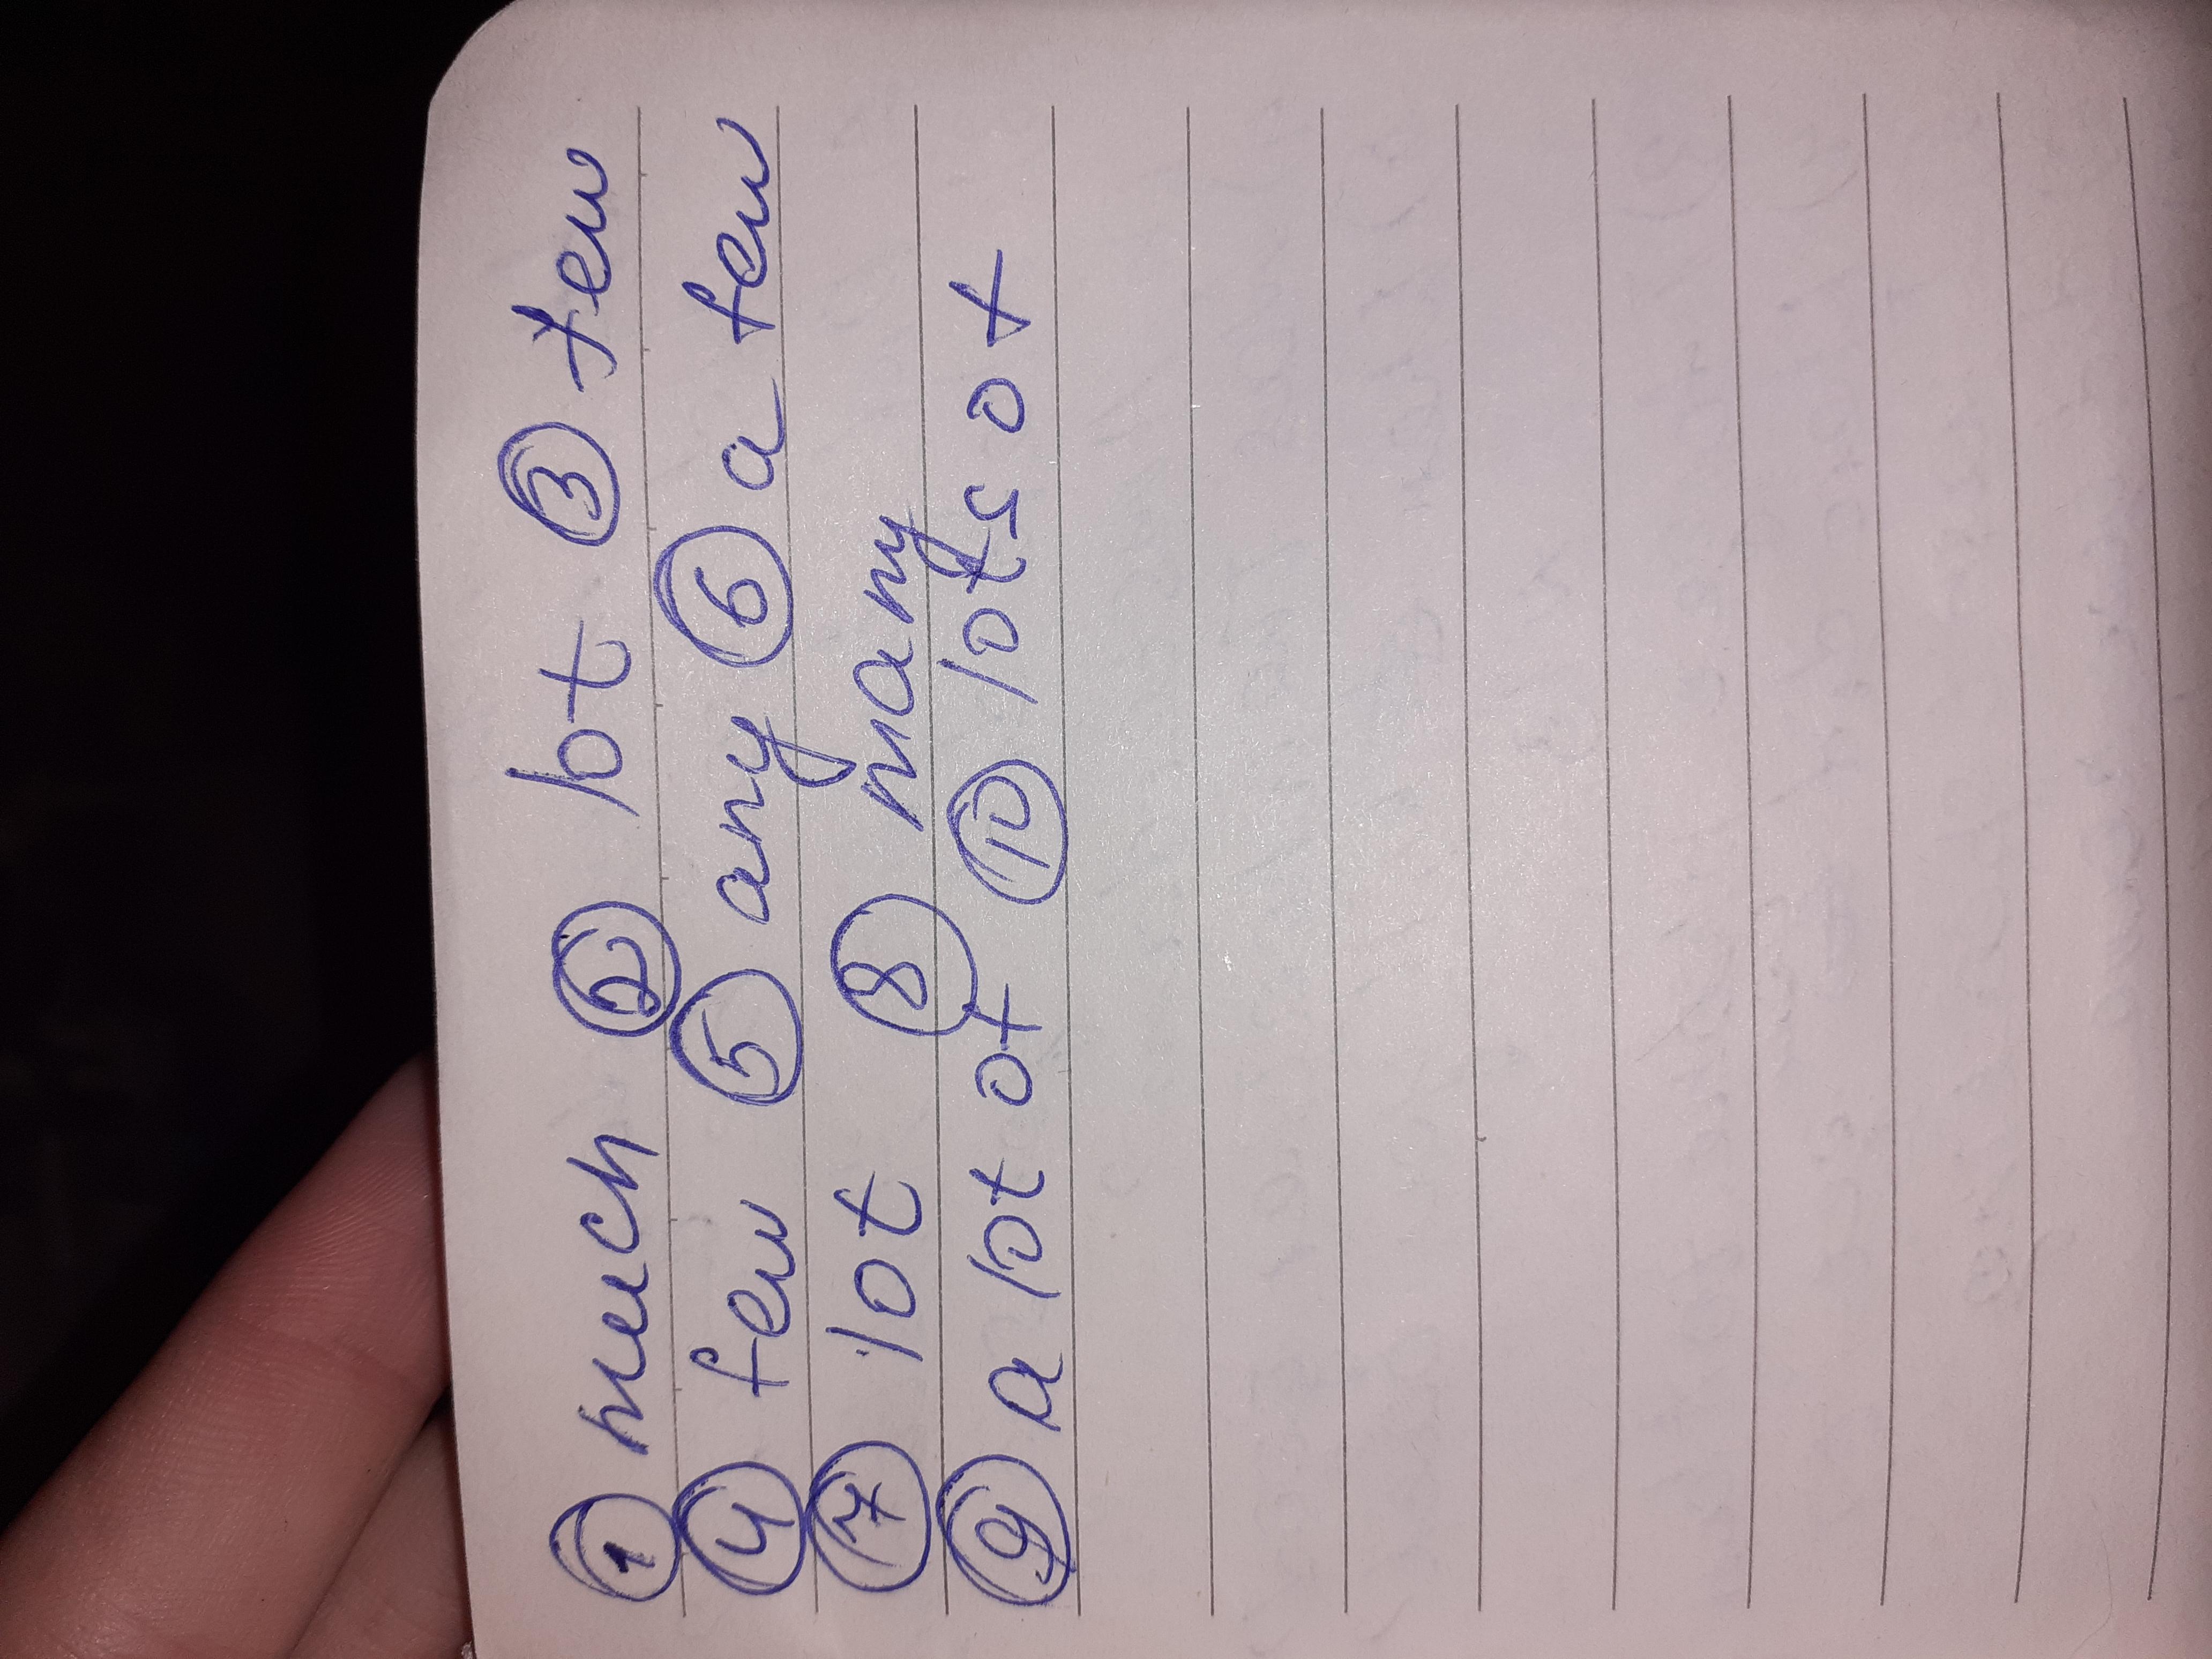 ① much ② lot ③ few
④ few ⑤ any ⑥ a few
⑦ lot ⑧ many
⑨ a lot of ⑩ lots of